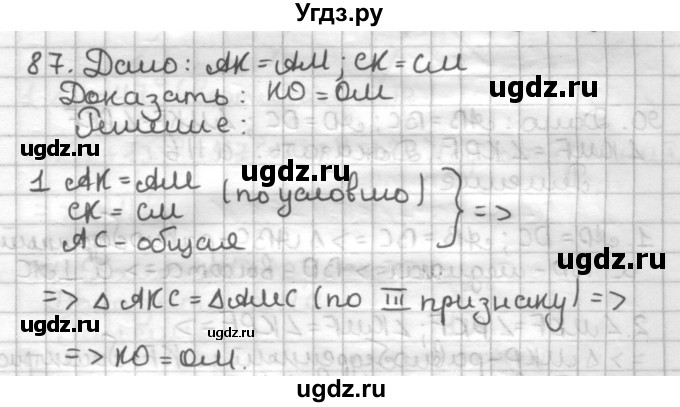 Угдз.ру
87. Дано: AK = AM; CK = CM
Доказать: KO = OM
Решение:
ugdz.ru
ugdz.ru
1 AK = AM (по условию)
CK = CM
AC - общая
} =>
ugdz.ru
=> △ AKC = △AMC (по III признаку) =>
ugdz.ru
=> KO = OM.
ugdz.ru
ugdz.ru